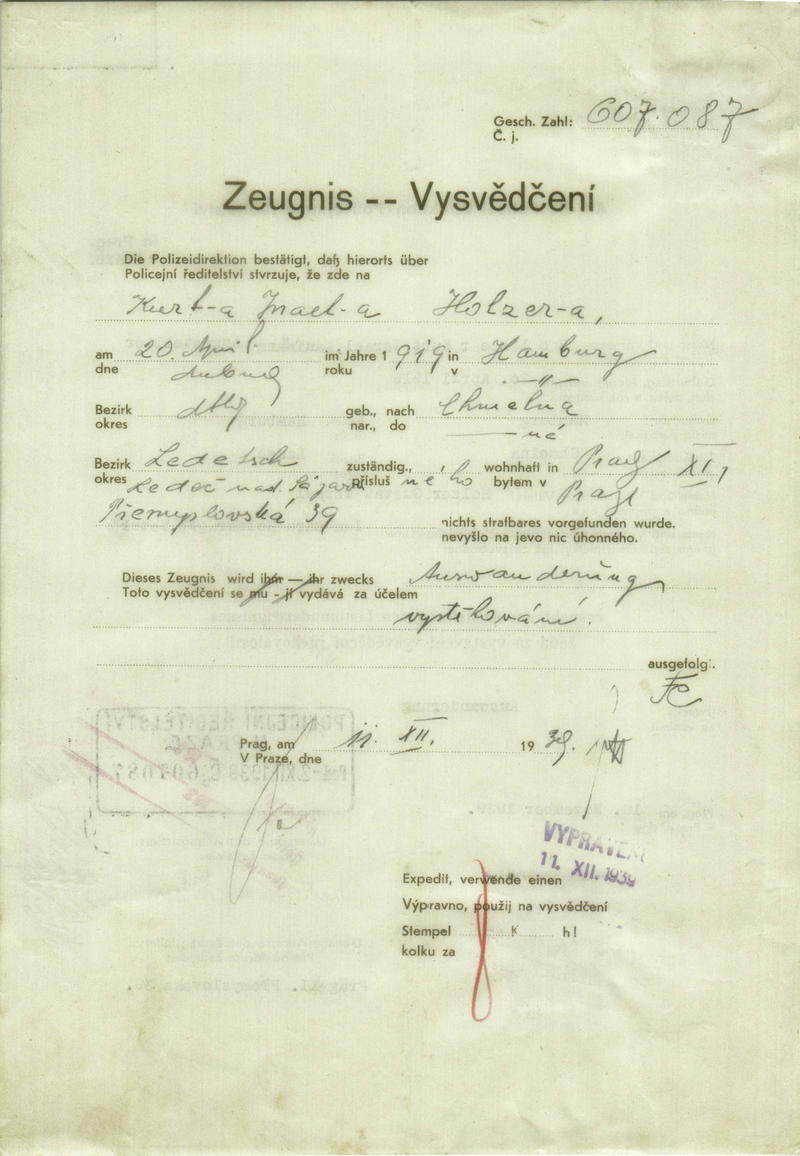 Gesch. Zahl: 607.087
Č. j.
Zeugnis -- Vysvědčení
Die Polizeidirektion bestätigt, daß hierorts über
Policejní ředitelství stvrzuje, že zde na
Kurt-a Israel-a Holzer-a,
am 20. April im Jahre 1919 in Hamburg
dne dubna roku v -"-
Bezirk dtto geb., nach Chmelna
okres nar., do — né
Bezirk Ledetsch zuständig., , wohnhaft in Prag XI,
okres Ledeč nad Sázavou přísluš ného bytem v Praze
Přemyslovská 39 nichts strafbares vorgefunden wurde.
nevyšlo na jevo nic úhonného.
Dieses Zeugnis wird ihm — ihr zwecks Auswanderung
Toto vysvědčení se mu - jí vydává za účelem
vystěhování.
ausgefolgt.
Prag, am 11. XII. 1939.
V Praze, dne
POLICEJNÍ ŘEDITELSTVÍ
V PRAZE
607087
VYPRAVENO
11. XII. 1939
Expedit, verwende einen
Výpravno, použij na vysvědčení
Stempel K hl
kolku za